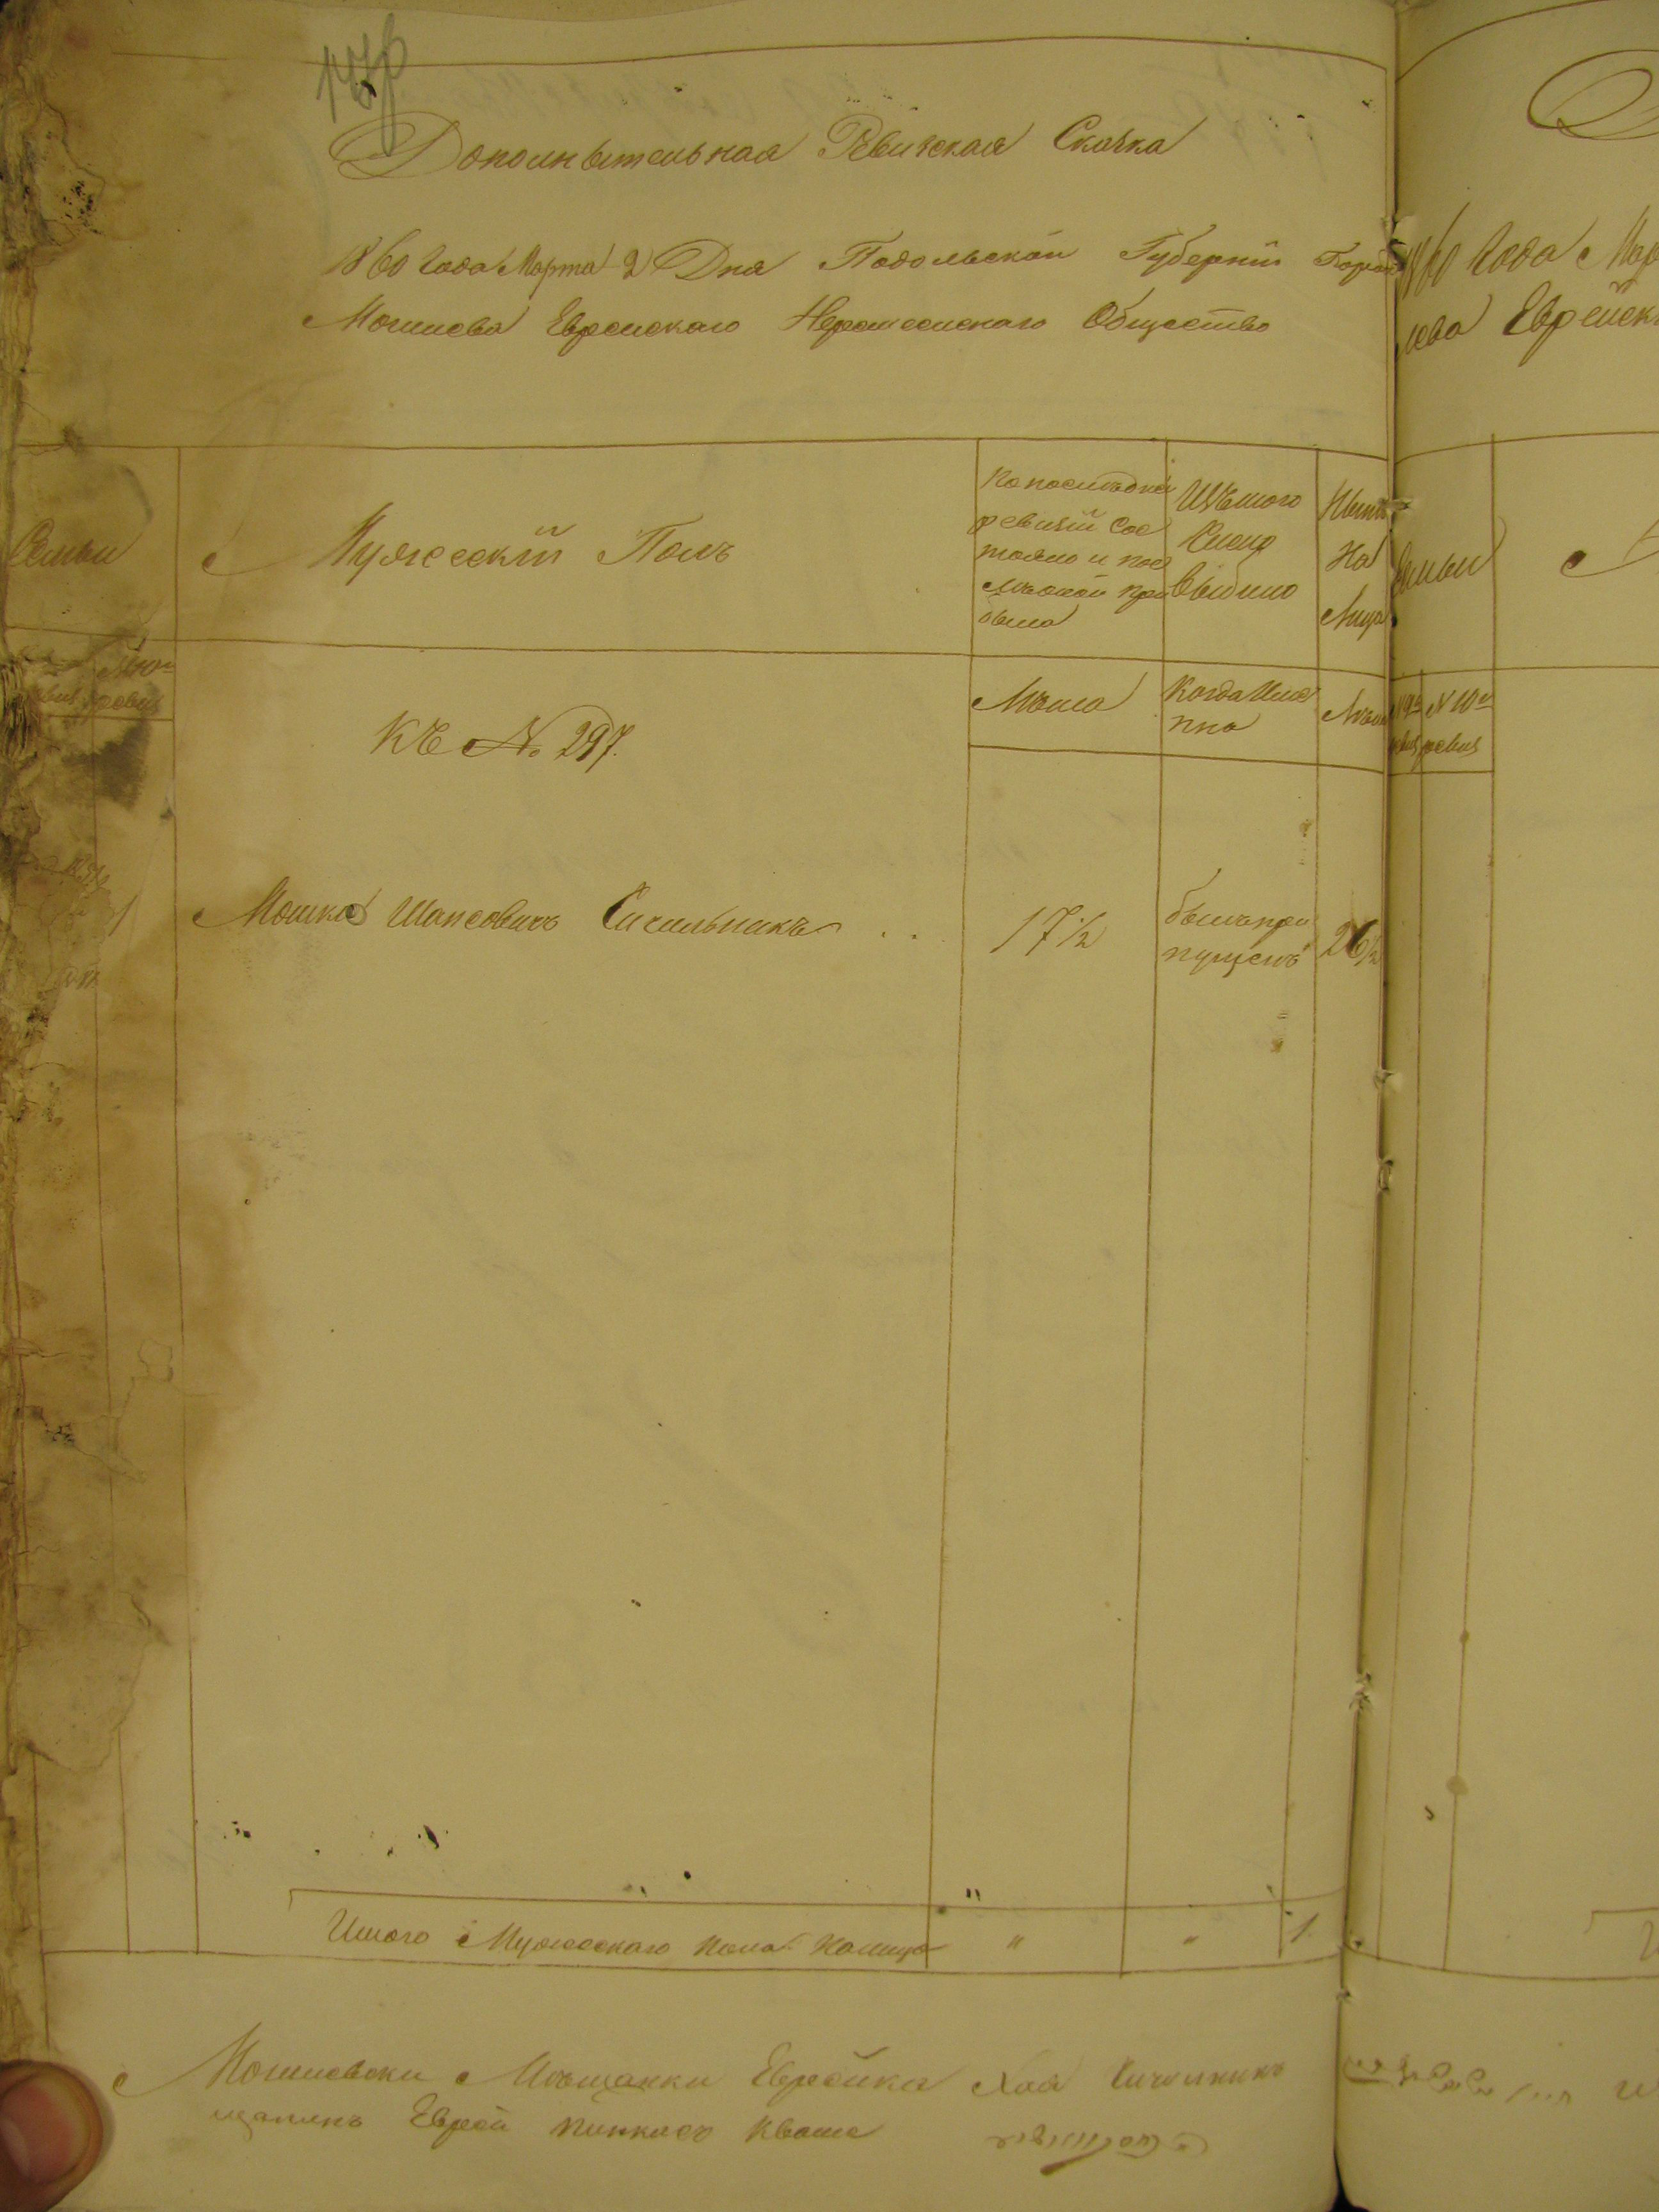 Дополнытельная Ревизская Сказка
1860 Года Марта 2 Дня Подольской Губерніи Города
Могилева Еврейскаго Неремесленаго Общество
Семьи
Мужескій Полъ
По последней
ревизіи сос
тояло и пос
ле оной при
было
Изъ того
Числа
выбыло
Ныне
На
Лицо
Лета
Когда Име
нно
Лета
КЪ № 297.
1
Мошко Шапсовичъ Сигильникъ . .
17½
былъ про
пущенъ
26½
Итого Мужескаго пола На лицо
"
"
1
Могилевски Мещанки Еврейка Хая
щанинъ Еврей Пинкасъ Кваша
1860 Года Мар
лева Еврейск
Семьи
№ 9й
№ 10й
ревиз
ревиз